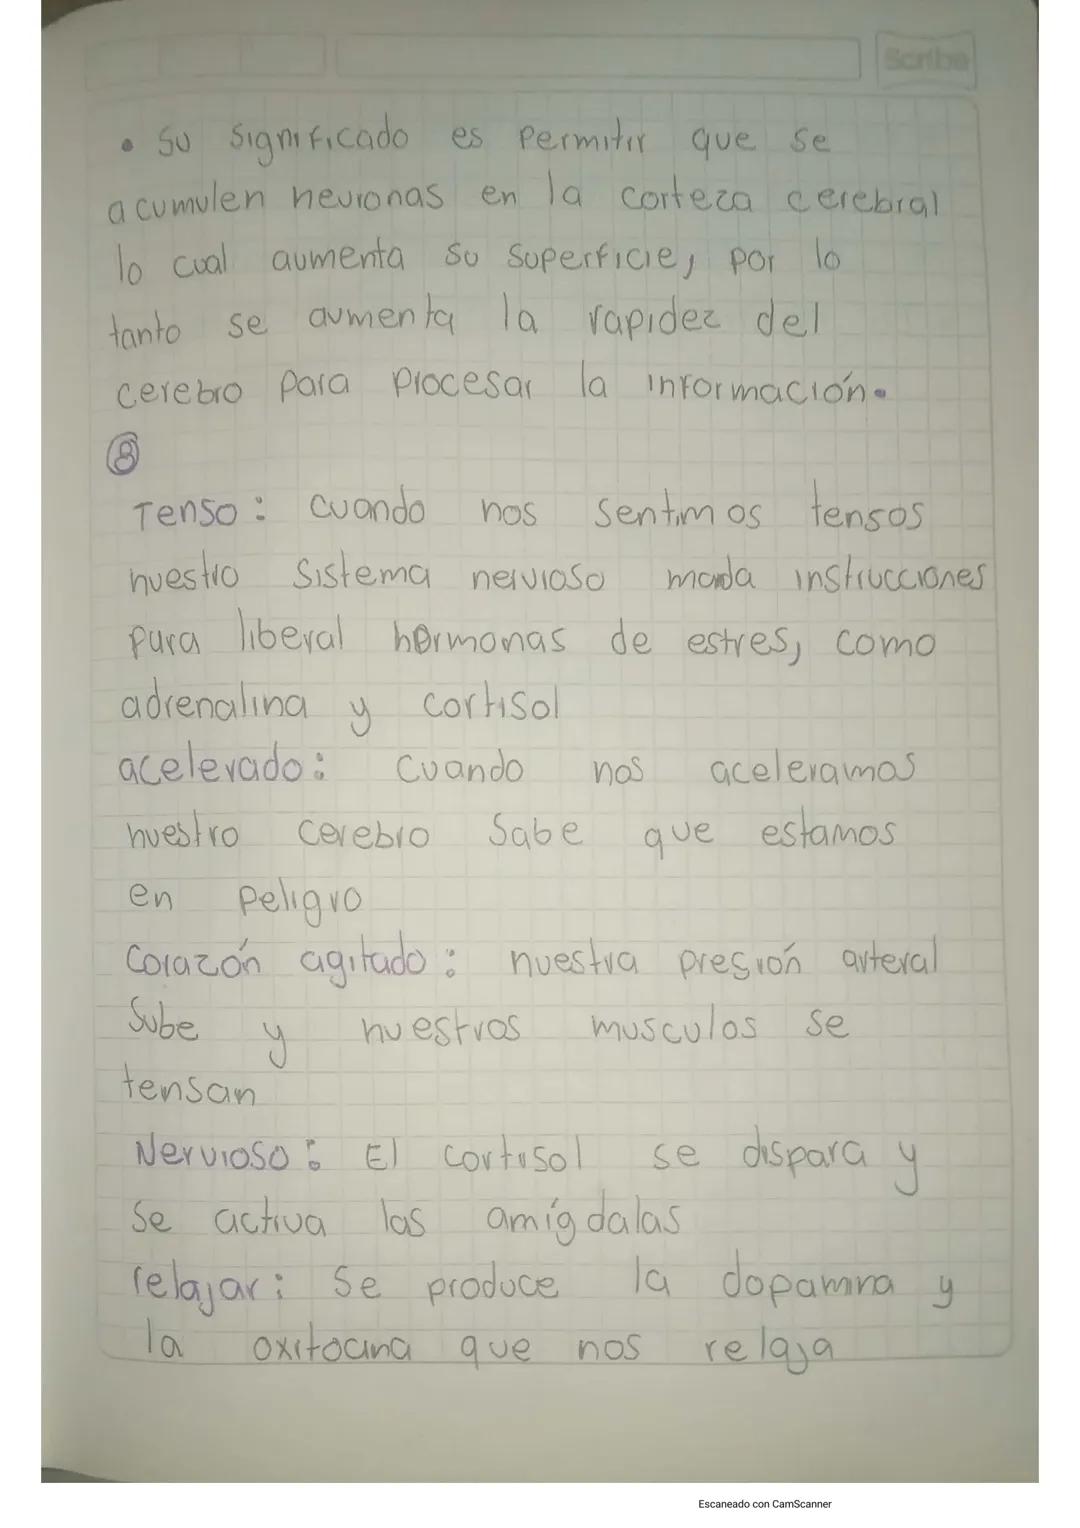 Scribe
• Su significado es permitir que se
acumulen neuronas en la corteza cerebral
lo cual aumenta su superficie, por lo
tanto se aumenta la rapidez del
cerebro para procesar la información.
8
Tenso: cuando nos sentimos tensos
nuestro sistema nervioso manda instrucciones
para liberal hormonas de estres, como
adrenalina y cortisol
acelerado: cuando nos aceleramos
nuestro cerebro sabe que estamos
en peligro
Corazón agitado: nuestra presión arteral
sube y nuestros musculos se
tensan
Nervioso: El cortisol se dispara y
se activa las amígdalas
relajar: Se produce la dopamina y
la oxitocina que nos relaja
Escaneado con CamScanner